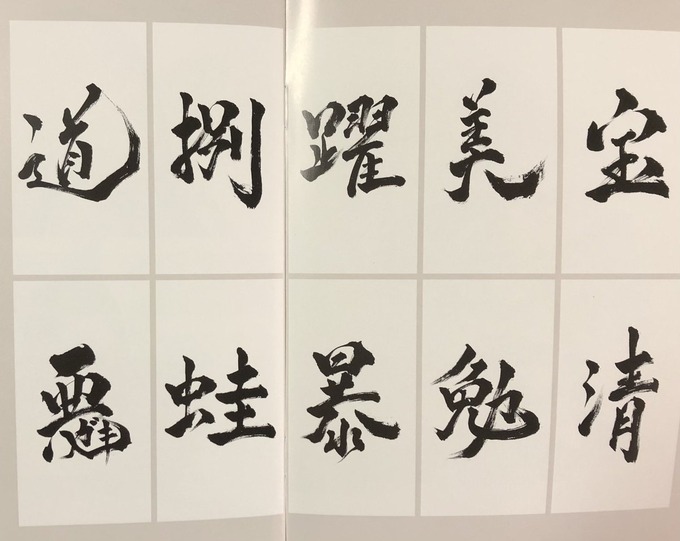 宝
美
躍
捌
道
清
勉
暴
蛙